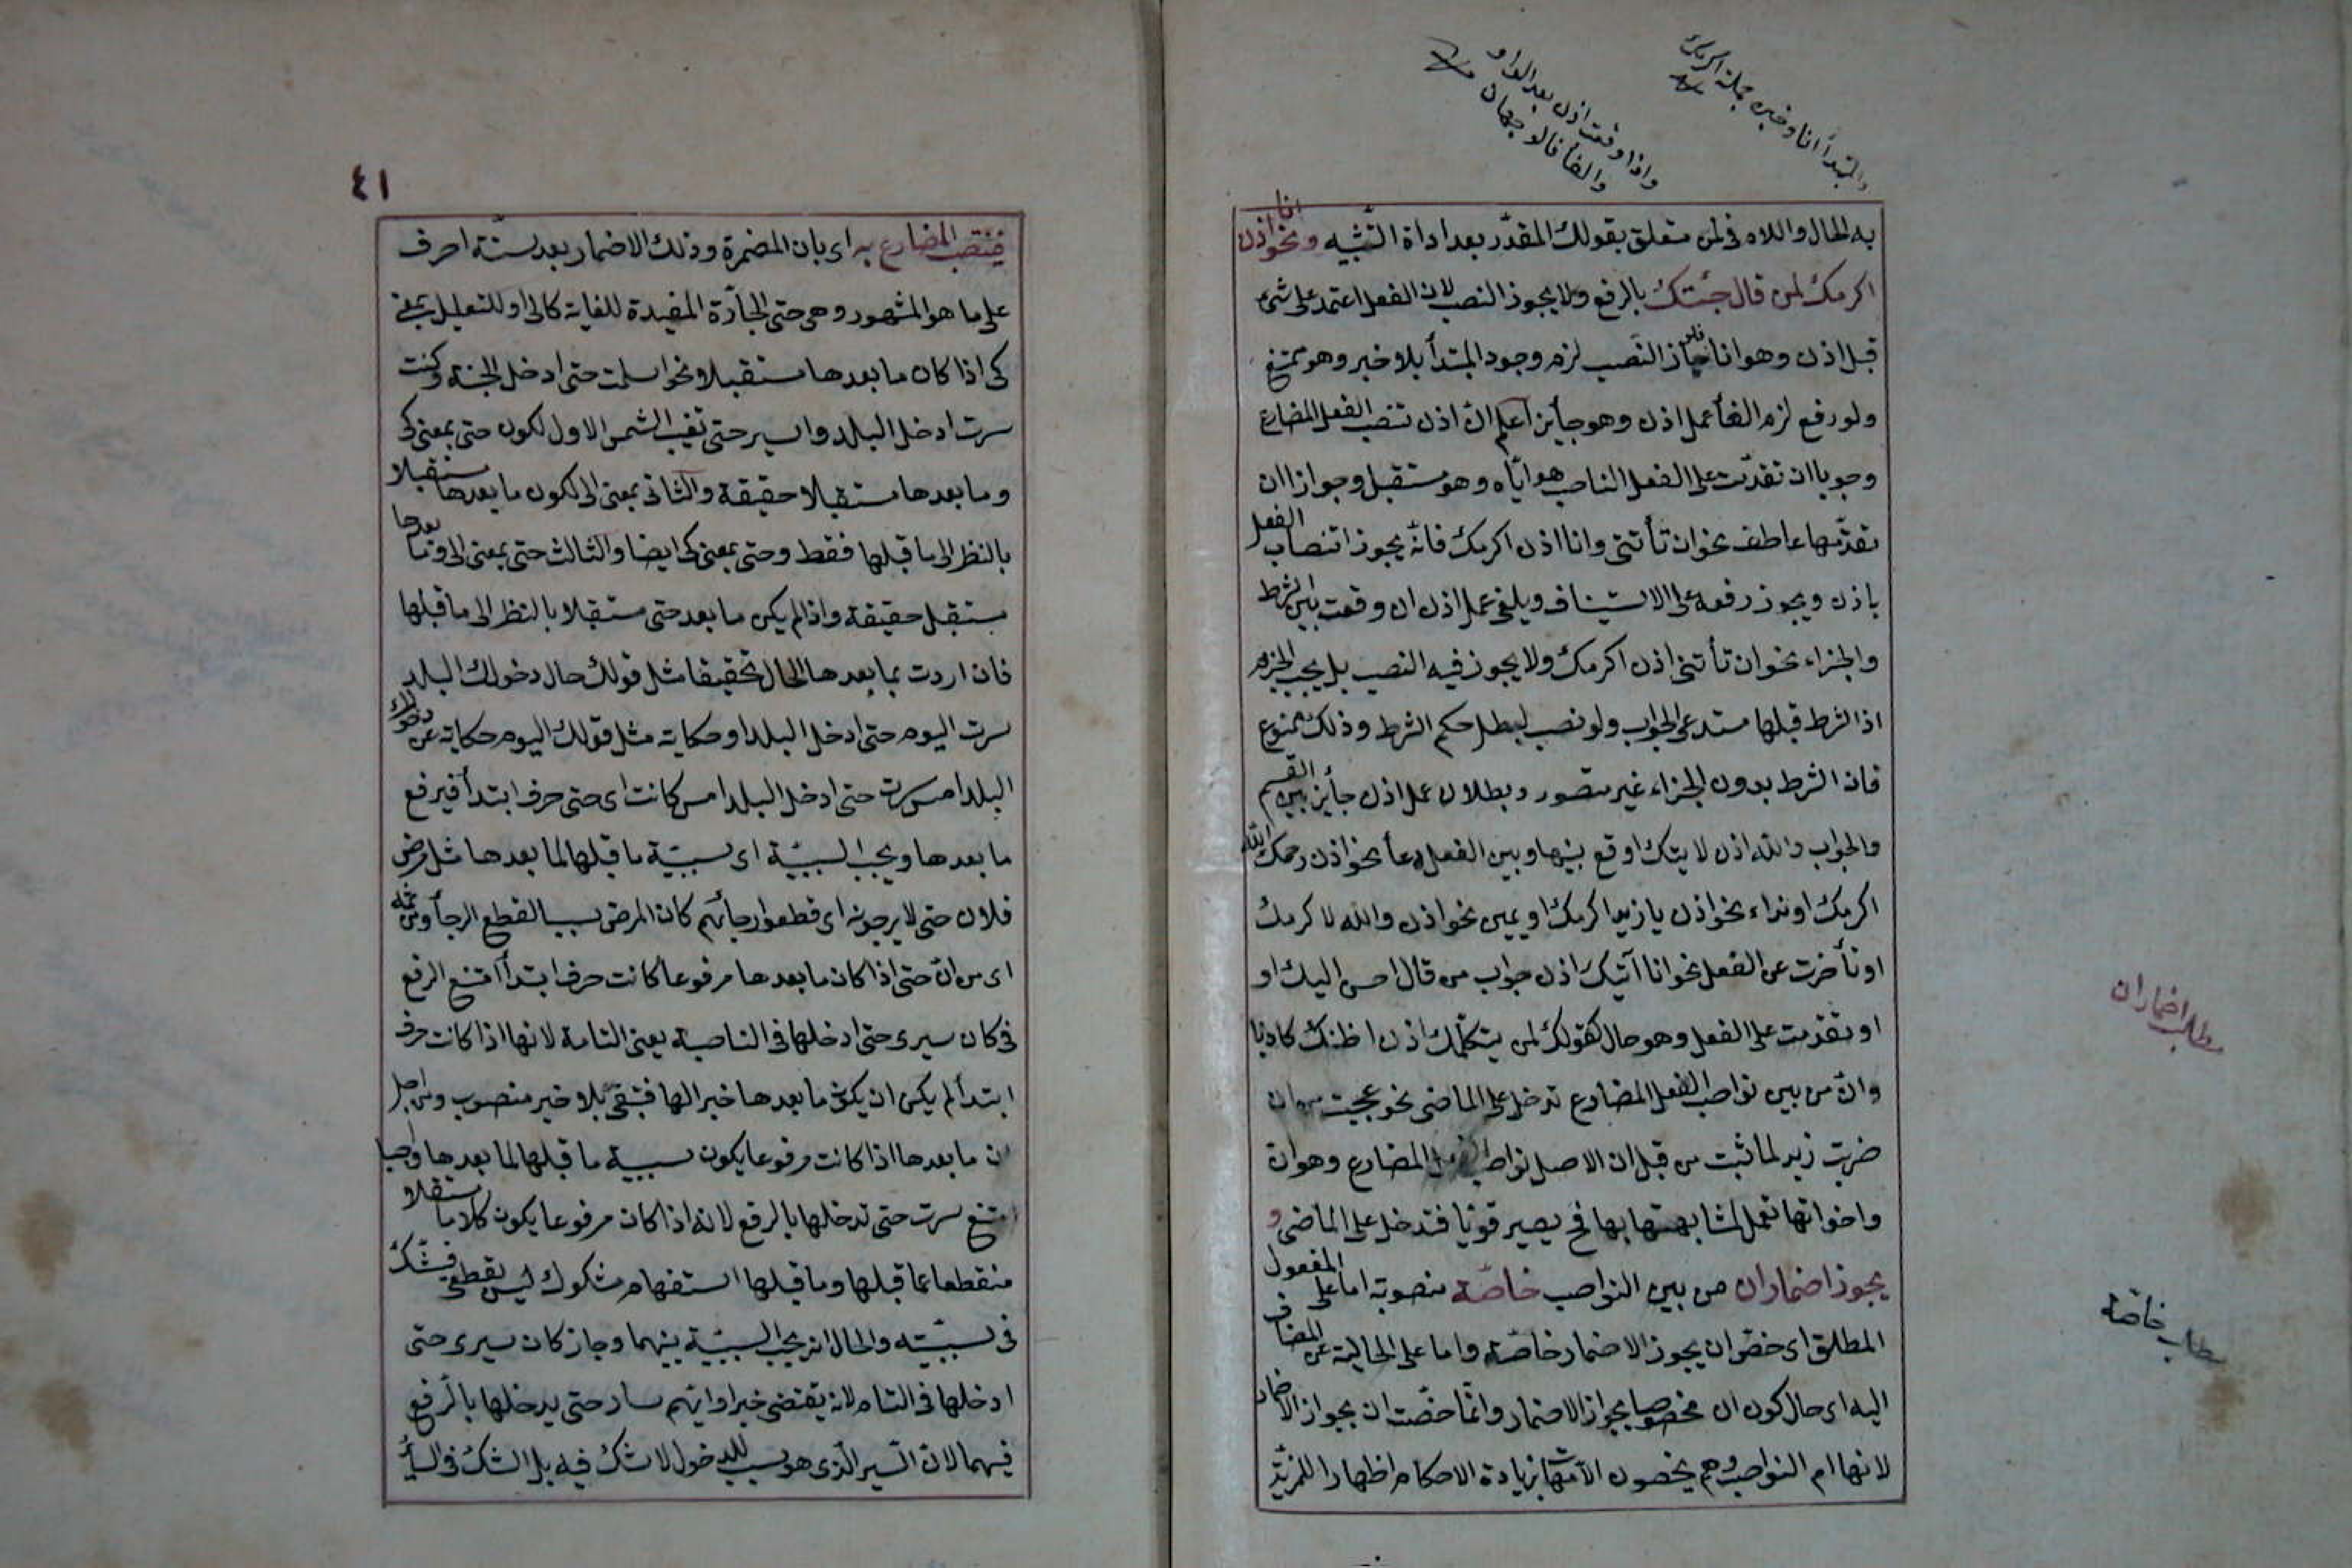 والمبتدأ انا وخبره جملة اكرمك
واذا وقعت اذن بعد الواو
والفأ فالوجهان
به الحال واللام فى لمن متعلق بقولك المقدّر بعد اداة التشبيه ونحو انا اذن
اكرمك لمن قال جئتك بالرفع ولا يجوز النصب لان الفعل اعتمد على شئ
قبل اذن وهو انا فلو جاز النصب لزم وجود المبتدأ بلا خبر وهو ممتنع
ولو رفع لزم الغأ عمل اذن وهو جايز اعلم انّ اذن تنصب الفعل المضارع
وجوبا ان تقدّمت على الفعل الناصب هو ايّاه وهو مستقبل وجوازا ان
تقدّمها عاطف نحو ان تأتنى وانا اذن اكرمك فانّه يجوز انتصاب الفعل
باذن ويجوز رفعه على الاستيناف ويلغى عمل اذن ان وقعت بين الشرط
والجزاء نحو ان تأتنى اذن اكرمك ولا يجوز فيه النصب بل يجب الجزم
اذ الشرط قبلها مستدعى الجواب ولو نصب لبطل حكم الشرط وذلك ممنوع
فان الشرط بدون الجزاء غير متصور وبطلان عمل اذن جأيز بين القسم
والجواب والله اذن لا يتك او قع بينها وبين الفعل دعأ نحو اذن رحمك الله
اكرمك او نداء نحو اذن يا زيد اكرمك او يمين نحو اذن والله لاكرمك
او تأخرت عن الفعل نحو انا آتيك اذن جواب من قال احسن اليك او
او تقدمت على الفعل وهو حال كقولك لمن يتكلّمك اذن اظنك كاذبا
وانّ من بين نواصب الفعل المضارع تدخل على الماضى نحو عجبت من ان
ضربت زيد لما ثبت من قبل ان الاصل نواصب الفعل المضارع وهو ان
واخواتها تعمل لمشابهتها بها فح يصير قويّا فتدخل على الماضى و
يجوز اضمار ان من بين النواصب خاصّة منصوبة اما على المفعول
المطلق اى خصّ ان يجوز الاضمار خاصّة واما على الحالية عن المضاف
اليه اى حال كون ان مخصوصا بجواز الاضمار وانّما خصّت ان بجواز الاضمار
لانها ام النواصب وهم يخصون الأمّهات بزيادة الاحكام اظهارا للمزيّة
مطلب اضمار ان
مطلب خاصّة
٤١
فينتصب المضارع به اى بان المضمرة وذلك الاضمار بعد ستّة احرف
على ما هو المشهور وهى حتى الجارّة المفيدة للغاية كالى او للتعليل بمعنى
كى اذا كان ما بعدها مستقبلا نحو اسلمت حتى ادخل الجنة وكنت
سرت ادخل البلد واسير حتى تغيب الشمس الاول لكون حتى بمعنى كى
وما بعدها مستقبلا حقيقة والثانى بمعنى الى لكون ما بعدها مستقبلا
بالنظر الى ما قبلها فقط وحتى بمعنى كى ايضا والثالث حتى بمعنى الى وما بعدها
مستقبل حقيقة واذا لم يكن ما بعد حتى مستقبلا بالنظر الى ما قبلها
فان اردت بما بعدها الحال تحقيقا مثل قولك حال دخولك البلد
سرت اليوم حتى ادخل البلد او حكاية مثل قولك اليوم حكاية عن دخولك
البلد امس سرت حتى ادخل البلد امس كانت اى حتى حرف ابتدأ فيرفع
ما بعدها ويجب السببيّة اى سببيّة ما قبلها لما بعدها مثل مرض
فلان حتى لا يرجونه اى قطعوا رجائهم كان المرض سببا لقطع الرجأ ومن ثمه
اى من انّ حتى اذا كان ما بعدها مرفوعا كانت حرف ابتدأ امتنع الرفع
فى كان سيرى حتى ادخلها فى الناصبة يعنى التامة لانها اذا كانت حرف
ابتدأ لم يكن ان يكون ما بعدها خبرا لها فتبقى بلا خبر منصوب ومن اجل
ان ما بعدها اذا كانت مرفوعا يكون سببية ما قبلها لما بعدها واجبا
امتنع سرت حتى تدخلها بالرفع لانه اذا كان مرفوعا يكون كلاما مستقلا
منقطعا عما قبلها وما قبلها استفهام مشكوك ليس بقطعى فيشك
فى سببيّته والحال انه يجب السببيّة بينهما وجاز كان سيرى حتى
ادخلها فى التامه لانه يقتضى خبرا وايّهم سار حتى يدخلها بالرفع
فيهما لان السير الذى هو سبب للدخول لا شك فيه بل الشك فى السأير